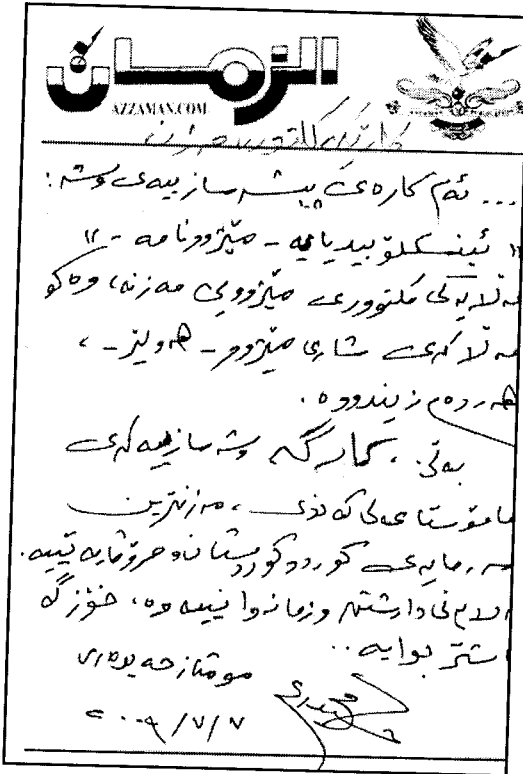 الزمان
AZZAMAN.COM
... ئەم كارەی پیشەسازییەی وشە:
" ئینسكلۆپیدیایە - مێژوونامە - "
قەڵایەكی كلتووری مێژوویی مەزنە، وەكو
قەڵاكەی شاری مێژوو - هەولێر - ،
هەردەم زیندووە.
بەڵێ، كارگە وشەسازییەكەی
مامۆستا عەلی كەندی، مەزنترین
سەرمایەی كوردو كوردستان و مرۆڤایەتییە.
ئەلام نی دارشتن و زمانەوانییەوە، خۆزگە
اشتر بوایە..
مومتاز حەیدەری
٢٠٠٩/٧/٧